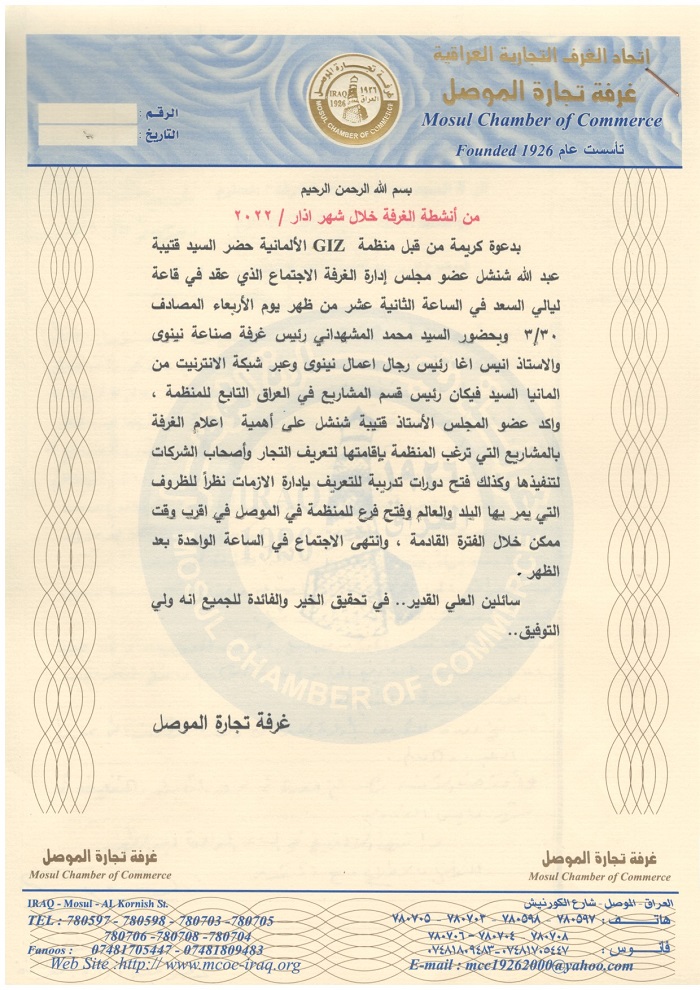 اتحاد الغرف التجارية العراقية
غرفة تجارة الموصل
Mosul Chamber of Commerce
تأسست عام Founded 1926
غرفة تجارة الموصل
IRAQ 1926
١٩٢٦ العراق
MOSUL CHAMBER OF COMMERCE
الرقم :
التاريخ :
بسم الله الرحمن الرحيم
من أنشطة الغرفة خلال شهر اذار / ٢٠٢٢
بدعوة كريمة من قبل منظمة GIZ الألمانية حضر السيد قتيبة
عبد الله شنشل عضو مجلس إدارة الغرفة الاجتماع الذي عقد في قاعة
ليالي السعد في الساعة الثانية عشر من ظهر يوم الأربعاء المصادف
٣/٣٠ وبحضور السيد محمد المشهداني رئيس غرفة صناعة نينوى
والاستاذ انيس اغا رئيس رجال اعمال نينوى وعبر شبكة الانترنيت من
المانيا السيد فيكان رئيس قسم المشاريع في العراق التابع للمنظمة ،
واكد عضو المجلس الأستاذ قتيبة شنشل على أهمية اعلام الغرفة
بالمشاريع التي ترغب المنظمة بإقامتها لتعريف التجار وأصحاب الشركات
لتنفيذها وكذلك فتح دورات تدريبة للتعريف بإدارة الازمات نظراً للظروف
التي يمر بها البلد والعالم وفتح فرع للمنظمة في الموصل في اقرب وقت
ممكن خلال الفترة القادمة ، وانتهى الاجتماع في الساعة الواحدة بعد
الظهر .
سائلين العلي القدير.. في تحقيق الخير والفائدة للجميع انه ولي
التوفيق..
غرفة تجارة الموصل
MOSUL CHAMBER OF COMMERCE
غرفة تجارة الموصل
Mosul Chamber of Commerce
غرفة تجارة الموصل
Mosul Chamber of Commerce
العراق - الموصل - شارع الكورنيش
هاتف : ٧٨٠٥٩٧ - ٧٨٠٥٩٨ - ٧٨٠٧٠٣ - ٧٨٠٧٠٥
٧٨٠٧٠٨ - ٧٨٠٧٠٤ - ٧٨٠٧٠٦
فانوس : ٠٧٤٨١٧٠٥٤٤٧ - ٠٧٤٨١٨٠٩٤٨٣
E-mail : mcc19262000@yahoo.com
IRAQ - Mosul - AL Kornish St.
TEL : 780597 - 780598 - 780703 - 780705
780706 - 780708 - 780704
Fanoos : 07481705447 - 07481809483
Web Site :http:// www.mcoc-iraq.org